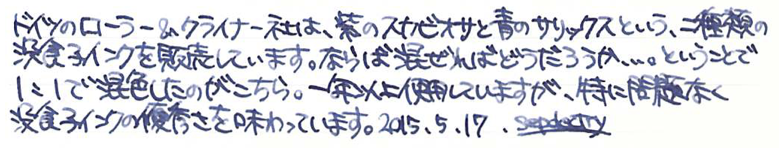 ドイツのローラー&クライナー社は、紫のスカビオサと青のサリックスという、二種類の
没食子インクを販売しています。ならば混ぜればどうだろうか…。ということで
1:1で混色したのがこちら。一年以上使用していますが、特に問題なく
没食子インクの優秀さを味わっています。2015.5.17.